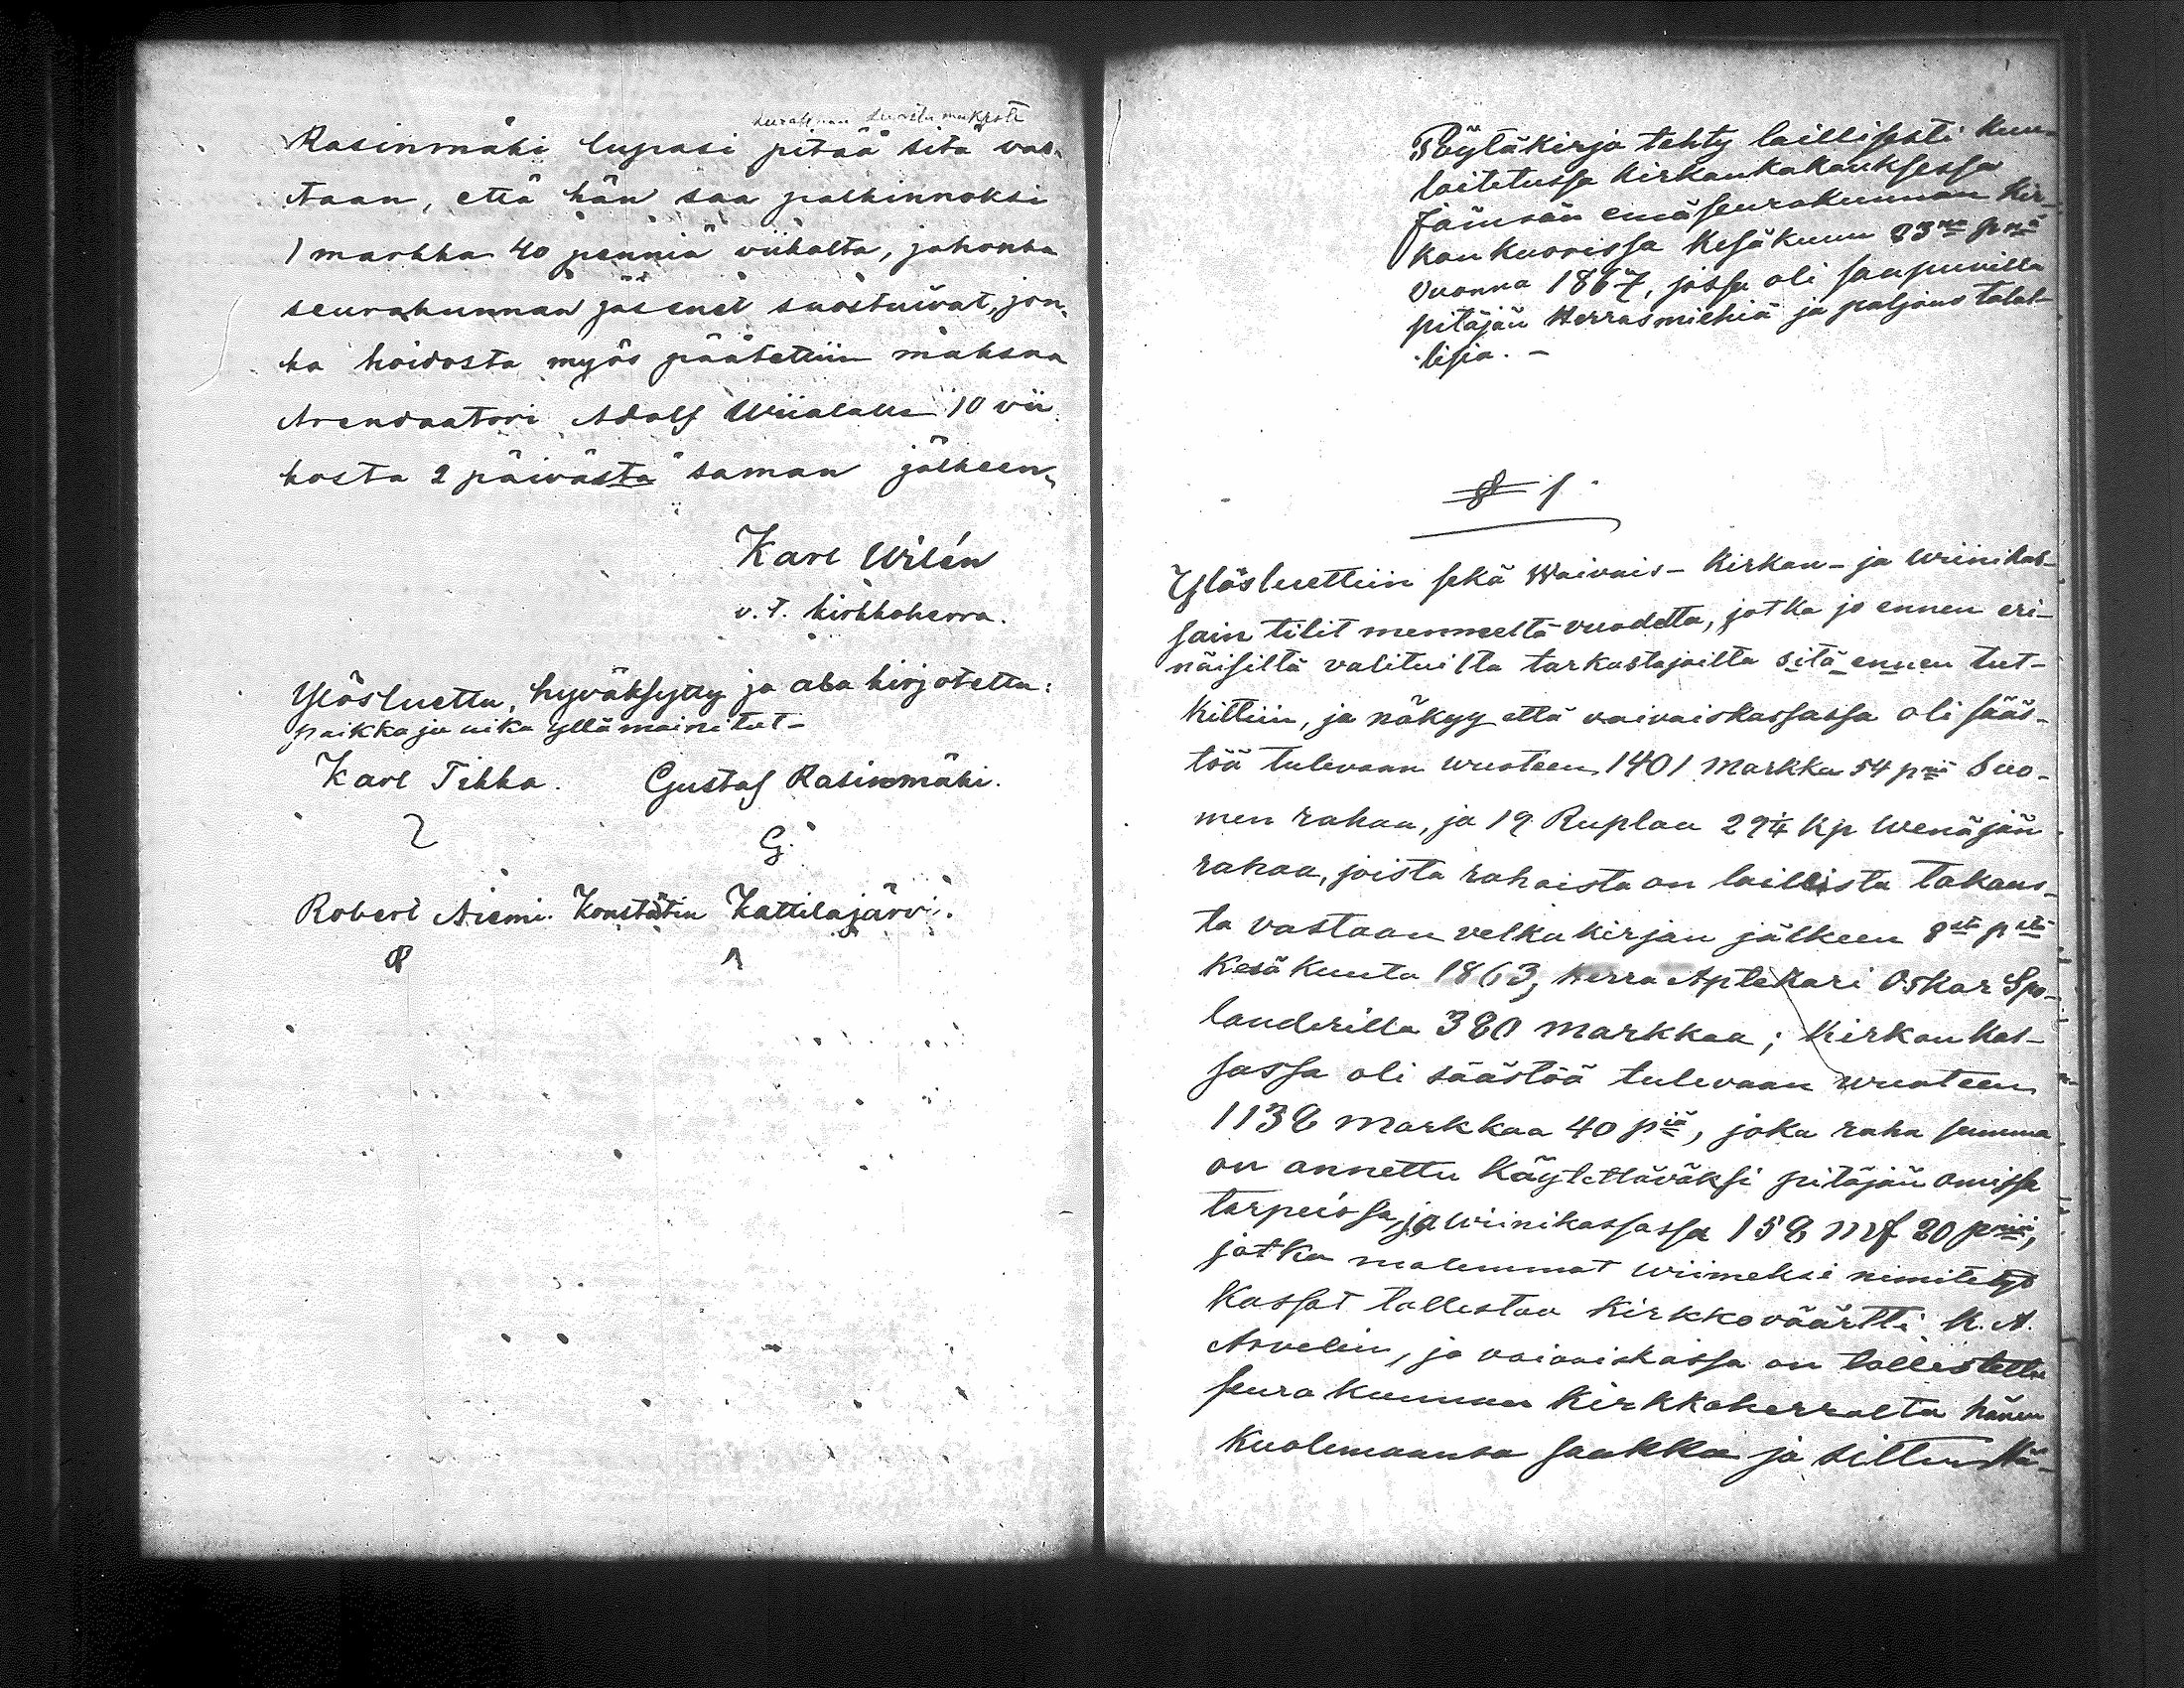 Rasinmäki lupasi pitää sitä vas-
taan, että hän saa palkinnoksi
1 markka 40 penniä viikolta, johonka
seurakunnan jäsenet suostuivat, jon-
ka hoidosta myös päätettiin maksaa
Arendaatori Adolf Wiialalle 10 vii
kosta 2 päivästä saman jälkeen.
Karl Wilén
v.t. kirkkoherra.
Ylösluettu, hyväksytty ja ala kirjotettu:
paikka ja aika yllä mainitut-
Karl Tikka. Gustaf Rasinmäki.
G.
Robert Niemi. Konstatin Kattilajärvi.
Pöytäkirja tehty laillisesti kuu-
loitetussa kirkonkokouksessa
Jämsän emäseurakunnan kir-
kon kuorissa Kesäkuun 23na pnä
vuonna 1867, jossa oli saapuvilla
pitäjän Herrasmiehiä ja paljous talol-
lisia. -
§ 1
Ylösluettiin sekä Waivais- Kirkon- ja Wiinikas-
sain tilit menneeltä vuodelta, jotka jo ennen eri-
näisiltä valituilta tarkastajoilta sitä ennen tut-
kittiin, ja näkyy että vaivaiskassassa oli sääs-
töä tulevaan wuoteen 1401 markka 54 pniä Suo-
men rahaa, ja 19 Ruplaa 29¼ kp Wenäjän
rahaa, joista rahoista on laillista takaus-
ta vastaan velkakirjan jälkeen 8sta pstä
Kesäkuuta 1863, Herra Aptekari Oskar Spo-
landerilla 320 markkaa; Kirkon kas-
sassa oli säästöä tulevaan wuoteen
1132 markkaa 40 piä, joka raha summa
on annettu käytettäväksi pitäjän omissa
tarpeissa, ja wiinikassassa 152 mk 20 pniä,
jotka molemmat wiimeksi nimitetyt
kassat tallestaa kirkkoväärtti K. A.
Arvelin, ja vaivaiskassa on tallistettu
seurakunnan Kirkkoherralta hänen
kuolemaansa saakka ja sitten